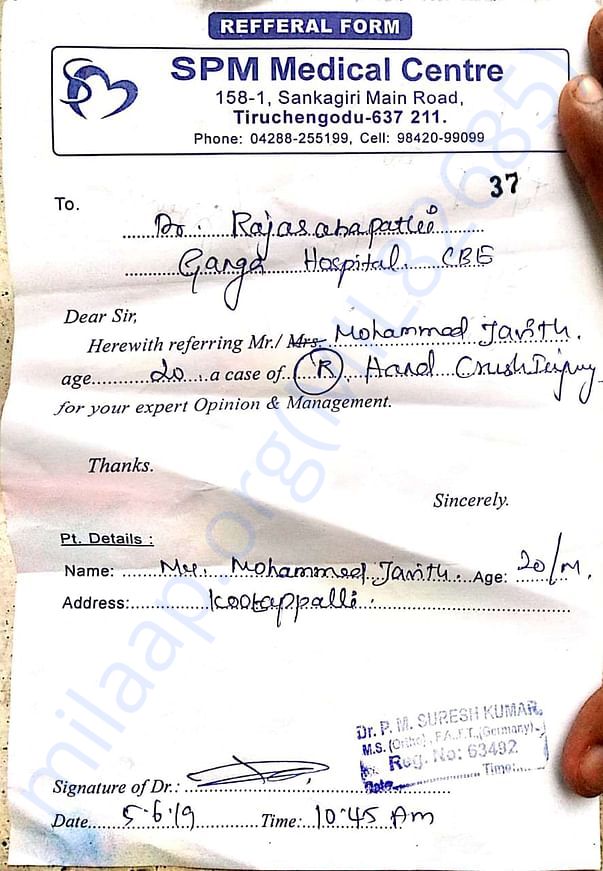 REFFERAL FORM
SPM Medical Centre
158-1, Sankagiri Main Road,
Tiruchengodu-637 211.
Phone: 04288-255199, Cell: 98420-99099
37
To.
Dr. Rajasabapathi
Ganga Hospital CBE
Dear Sir,
Herewith referring Mr./ Mrs. Mohammed Javith.
age 20 a case of (R) Hand Crush Injury
for your expert Opinion & Management.
Thanks.
Sincerely.
Pt. Details :
Name: Mr. Mohammed Javith. Age: 20/M.
Address: Kootappalli.
Dr. P. M. SURESH KUMAR,
M.S. (Ortho)., F.A.F.T.,(Germany).,
Reg. No: 63492
Date Time:
Signature of Dr.:
Date 5.6.19 Time: 10.45 Am
milaap.org(MIL82685)